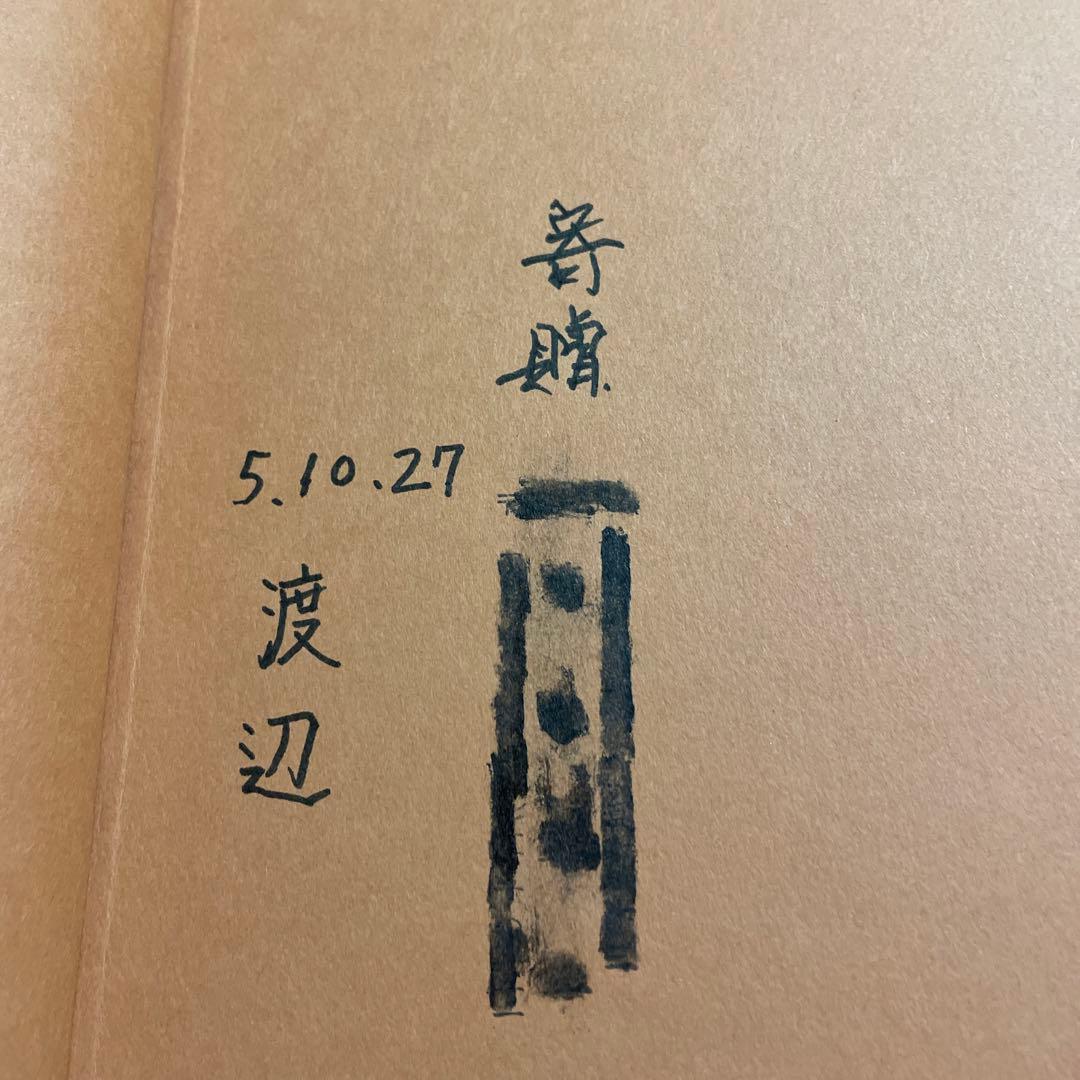 寄贈
5.10.27
渡辺